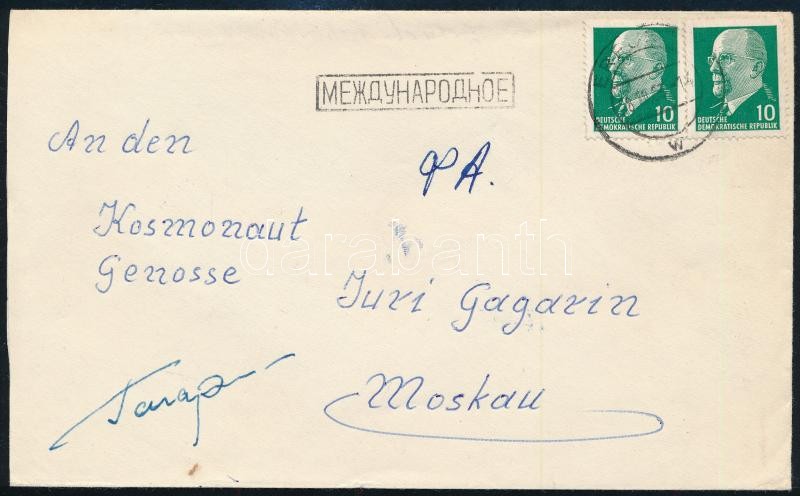 МЕЖДУНАРОДНОЕ
10
DEUTSCHE
DEMOKRATISCHE REPUBLIK
10
DEUTSCHE
DEMOKRATISCHE REPUBLIK
W
An den
PA.
Kosmonaut
Genosse
Juri Gagarin
Moskau
darabanth